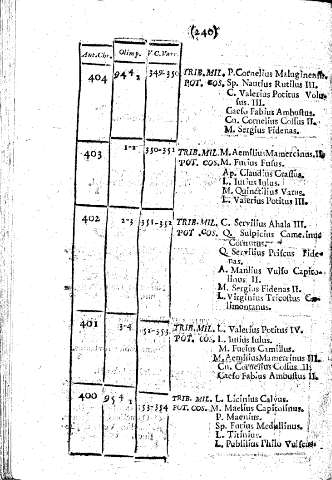 (240)
Ant. Chr. Olimp. V.C. Varr.
404 94 ½ 349-350 TRIB. MIL. P. Cornelius Maluginensis.
POT. COS. Sp. Nautius Rutilus III.
C. Valerius Potitus Volu-
sus. III.
Caeso Fabius Ambustus.
Cn. Cornelius Cossus II.
M. Sergius Fidenas.
403 1-2 350-351 TRIB. MIL. M. Aemilius Mamercinus. II.
POT. COS. M. Furius Fusus.
Ap. Claudius Crassus.
L. Iulius Iulus.
M. Quinctilius Varus.
L. Valerius Potitus III.
402 2-3 351-352 TRIB. MIL. C. Servilius Ahala III.
POT. COS. Q. Sulpicius Camerinus
Cornutus.
Q. Servilius Priscus Fide-
nas.
A. Manlius Vulso Capito-
linus II.
M. Sergius Fidenas II.
L. Virginius Tricostus Cae-
limontanus.
401 3-4 352-353 TRIB. MIL. L. Valerius Potitus IV.
POT. COS. L. Iulius Iulus.
M. Furius Camillus.
M. Aemilius Mamercinus III.
Cn. Cornelius Cossus III.
Caeso Fabius Ambustus II.
400 95 353-354 TRIB. MIL. L. Licinius Calvus.
POT. COS. M. Maelius Capitolinus.
P. Maenius.
Sp. Furius Medullinus.
L. Titinius.
L. Publilius Philo Vulscus.